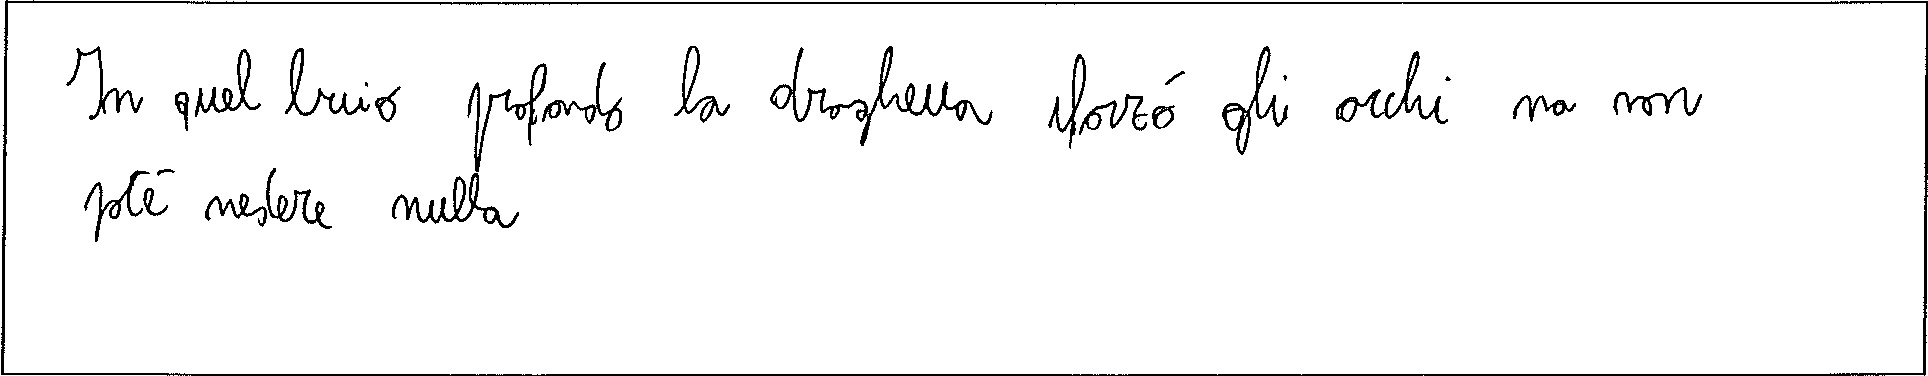 In quel buio profondo la draghella sforzó gli occhi ma non
poté vedere nulla